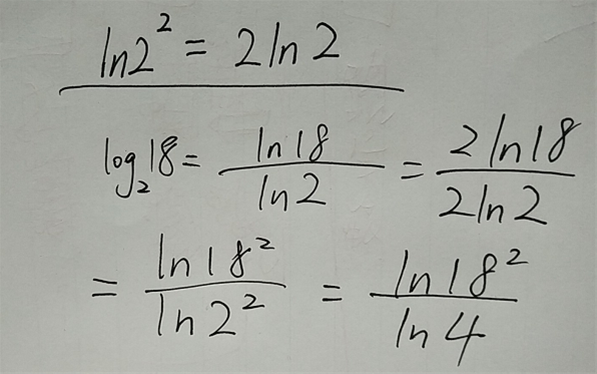 ln2² = 2ln2
log₂18 = ln18/ln2 = 2ln18/2ln2
= ln18²/ln2² = ln18²/ln4